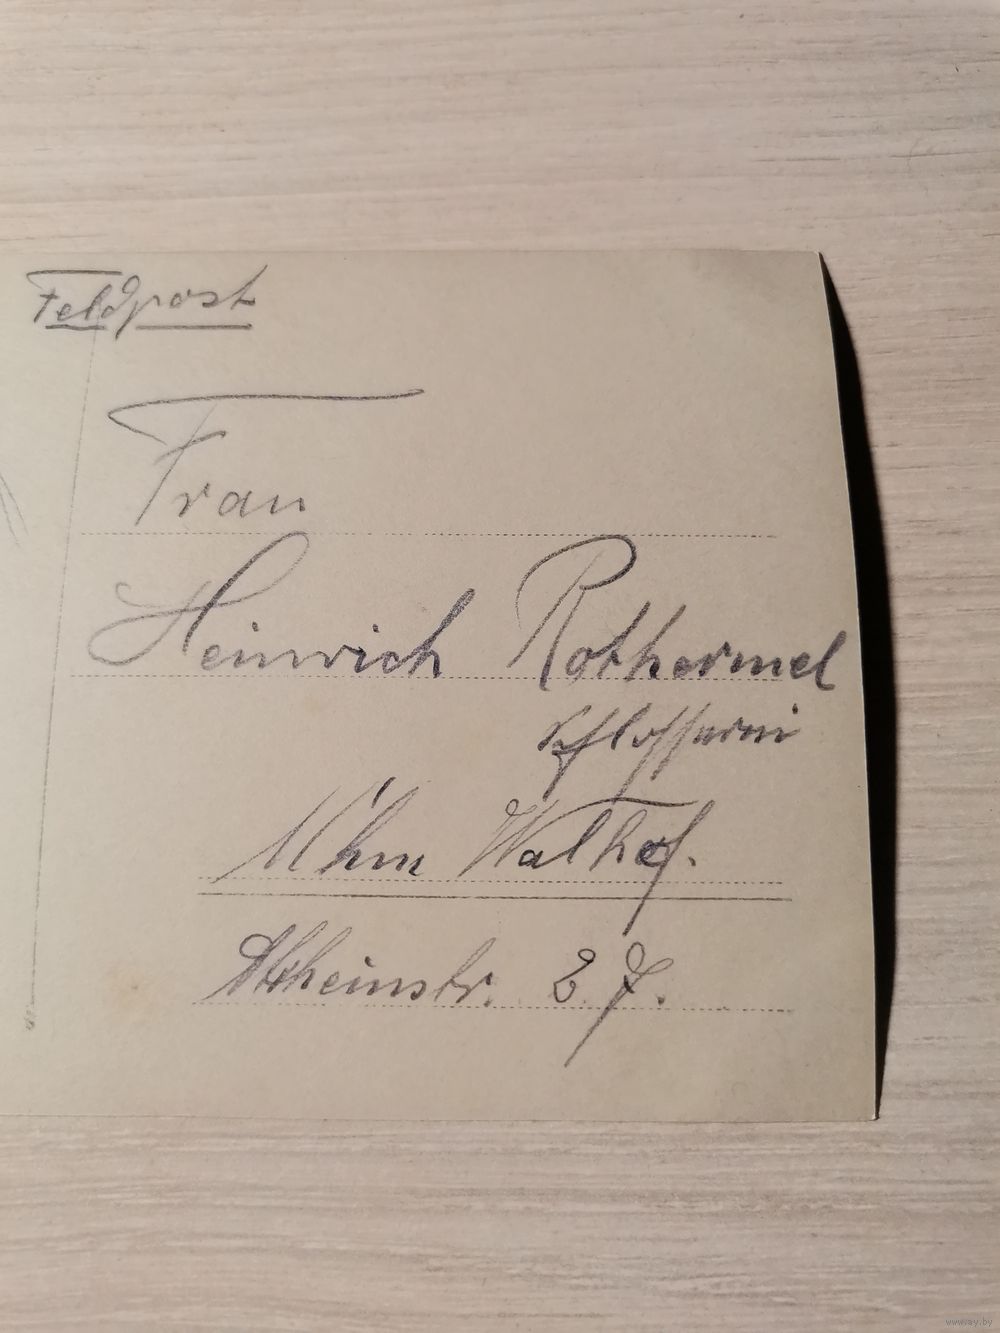 Feldpost
Frau
Heinrich Rothermel
Schlosserei
M'hm Walhof.
Oberrheinstr. 27.
www.ay.by